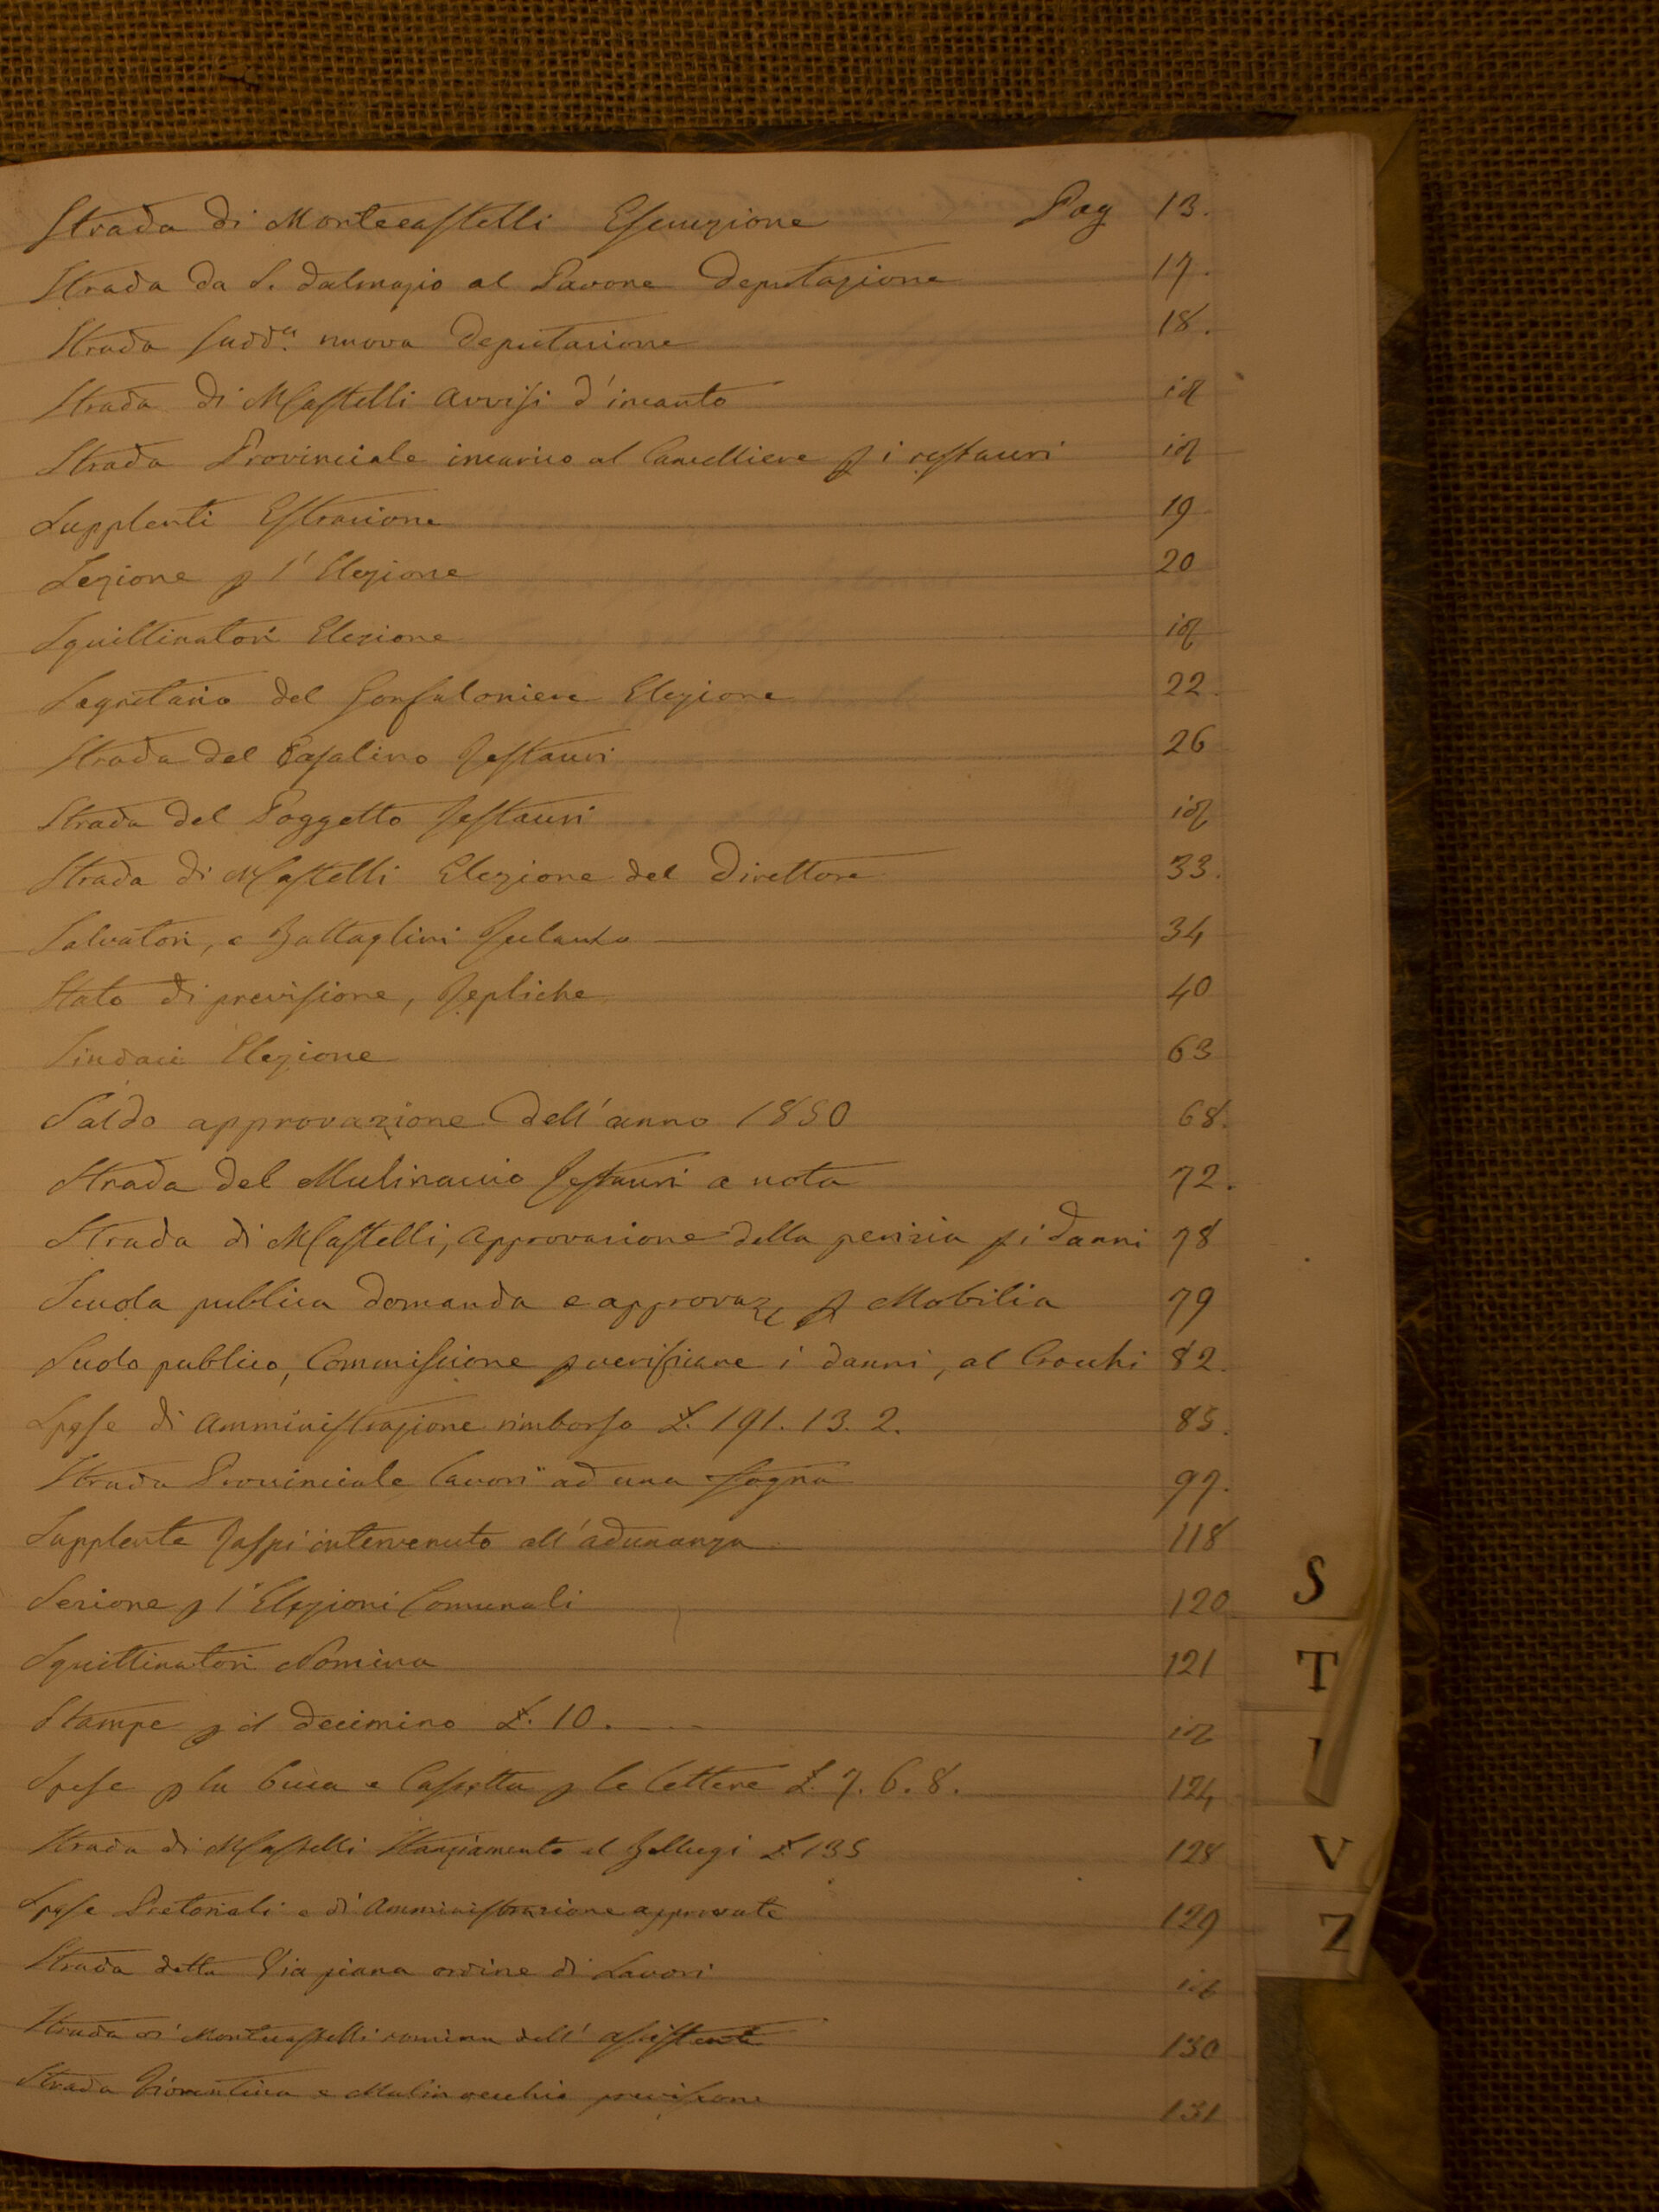 Strada di Montecastelli Esenzione Pag 13.
Strada da S. Dalmazio al Pavone Deputazione 17.
Strada sudd.a nuova Deputazione 18.
Strada di MCastelli avvisi d'incanto id
Strada Provinciale incarico al Cancelliere p i restauri id
Supplenti Estrazione 19
Sezione p l'Elezione 20
Squittinatori Elezione id
Segretario del Gonfaloniere Elezione 22.
Strada del Casalino Restauri 26
Strada del Poggetto Restauri id
Strada di MCastelli Elezione del Direttore 33.
Salvatori, e Battaglini 34
Stato di previsione, Repliche 40
Sindaci Elezione 63
Saldo approvazione dell'anno 1850 68.
Strada del Mulinaccio Restauri a nota 72.
Strada di MCastelli, approvazione della perizia p i danni 78
Scuola publica domanda e approvaz.e p Mobilia 79
Suolo publico, Commissione p verificare i danni, al Crocchi 82.
Spese di Amministrazione rimborso £. 191. 13. 2. 85.
Strada Provinciale lavori ad una fogna 97.
Supplente Raspi intervenuto all'adunanza 118
Sezione p l'Elezioni Comunali 120
Squittinatori Nomina 121
Stampe p il decimino £. 10. id
Spese p la buca e Cassetta p le lettere £. 7. 6. 8. 124
Strada di MCastelli Stanziamento al Bellugi £ 135 128
Spese Pretoriali e di Amministrazione approvate 129
Strada detta Via piana ordine di Lavori id
Strada di Montecastelli nomina dell'assistente 130
Strada e Mulin vecchio previsione 131
S
T
V
Z